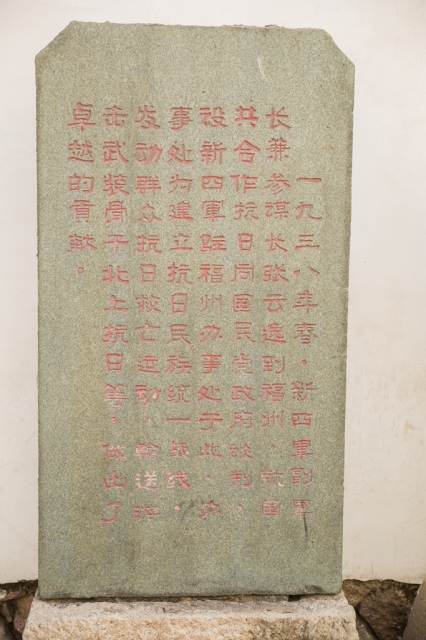 一九三八年春，新四軍副軍
长兼参谋长张云逸到福州，就国
共合作抗日同国民党政府谈判，
设新四軍驻福州办事处于此，办
事处为建立抗日民族统一战线，
发动群众抗日救亡运动，输送
武装骨干北上抗日等，做出了
卓越的貢献。